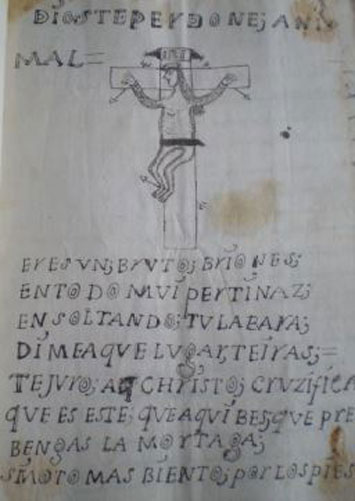 DIOS TE PERDONE; ANI
MAL=
INRI
ERES UN; BRUTO; BRIONES;
EN TODO MUI PERTINAZ;
EN SOLTANDO; TU LA BARA;
DIME A QUE LUGAR; TE IRAS;=
TE JURO; A CHRISTO; CRUZIFICA
QUE ES ESTE; QUE AQUI BES; QUE PRE
BENGAS LA MORTAGA;
MOTO MAS BIENTO; POR LOS PIES